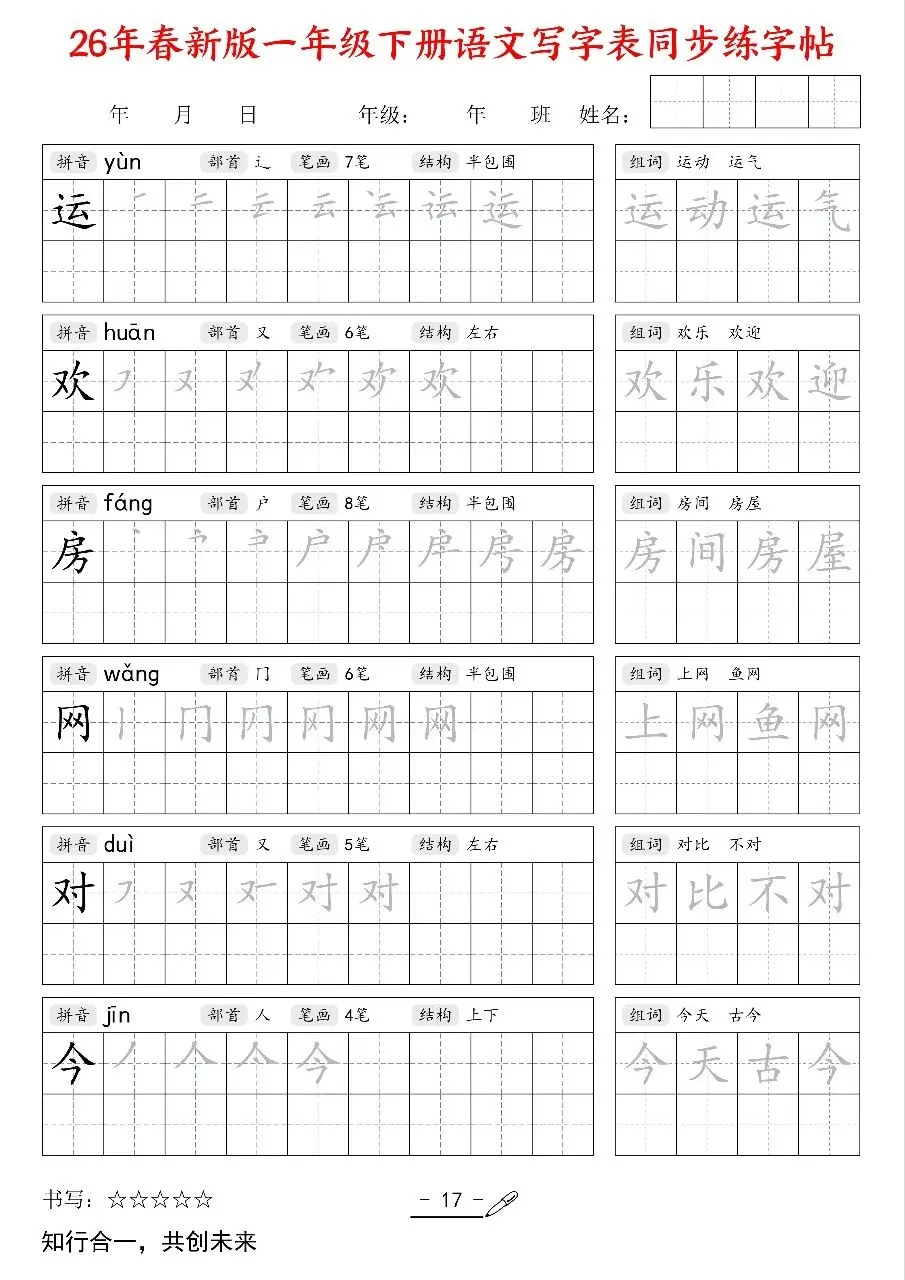 26年春新版一年级下册语文写字表同步练字帖
年 月 日 年级： 年 班 姓名：
拼音 yùn 部首 辶 笔画 7笔 结构 半包围
组词 运动 运气
运
运动运气
拼音 huān 部首 又 笔画 6笔 结构 左右
组词 欢乐 欢迎
欢
欢乐欢迎
拼音 fáng 部首 户 笔画 8笔 结构 半包围
组词 房间 房屋
房
房间房屋
拼音 wǎng 部首 冂 笔画 6笔 结构 半包围
组词 上网 鱼网
网
上网鱼网
拼音 duì 部首 又 笔画 5笔 结构 左右
组词 对比 不对
对
对比不对
拼音 jīn 部首 人 笔画 4笔 结构 上下
组词 今天 古今
今
今天古今
书写：☆☆☆☆☆
- 17 -
知行合一，共创未来